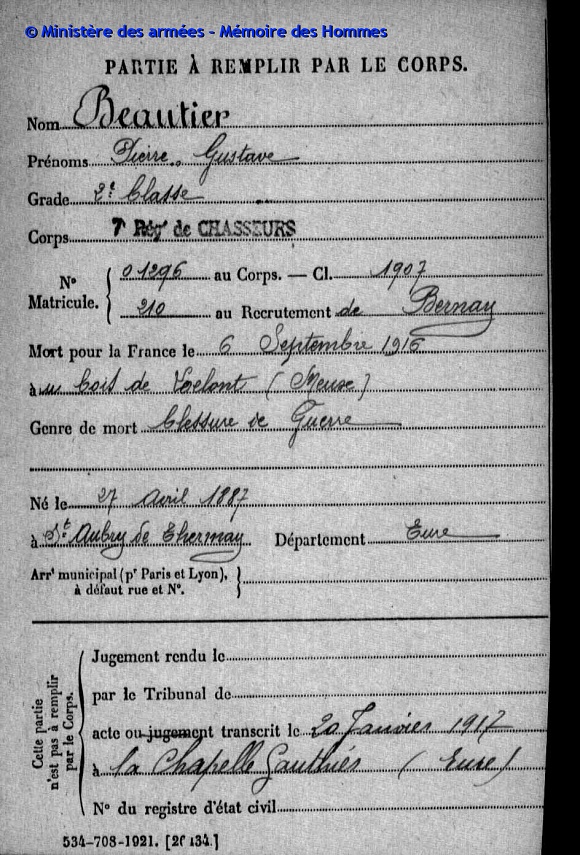 © Ministère des armées - Mémoire des Hommes
PARTIE À REMPLIR PAR LE CORPS.
Nom Beautier
Prénoms Pierre Gustave
Grade 2e Classe
Corps 7e Régt de CHASSEURS
No Matricule. { 01296 au Corps. — Cl. 1907
210 au Recrutement de Bernay
Mort pour la France le 6 Septembre 1916
à bois de (Meuse)
Genre de mort blessure de Guerre
Né le 27 avril 1887
à St Aubry de Département Eure
Arrt municipal (pr Paris et Lyon), à défaut rue et No. }
Cette partie n'est pas à remplir par le Corps. {
Jugement rendu le
par le Tribunal de
acte ou jugement transcrit le 20 Janvier 1917
à la Chapelle Gauthier (Eure)
No du registre d'état civil
534-708-1921. [2f 134.]